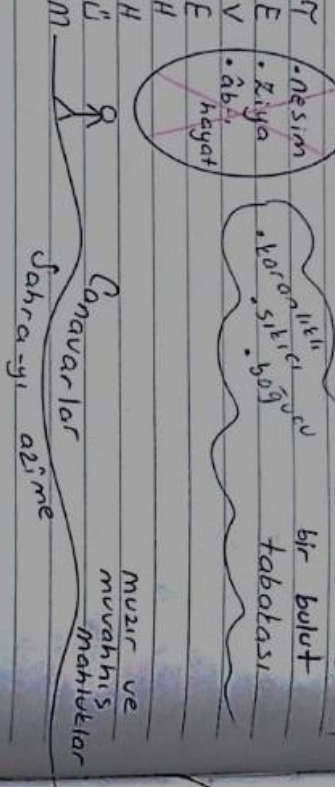 T
E
V
E
H
H
Ü
M
• nesim
• ziya
• âb-ı
hayat
• karanlıklı
• sıkıcı
• boğucu
bir bulut
tabakası
muzır ve
muvahhiş
mahluklar
Canavarlar
Sahra-yı azîme